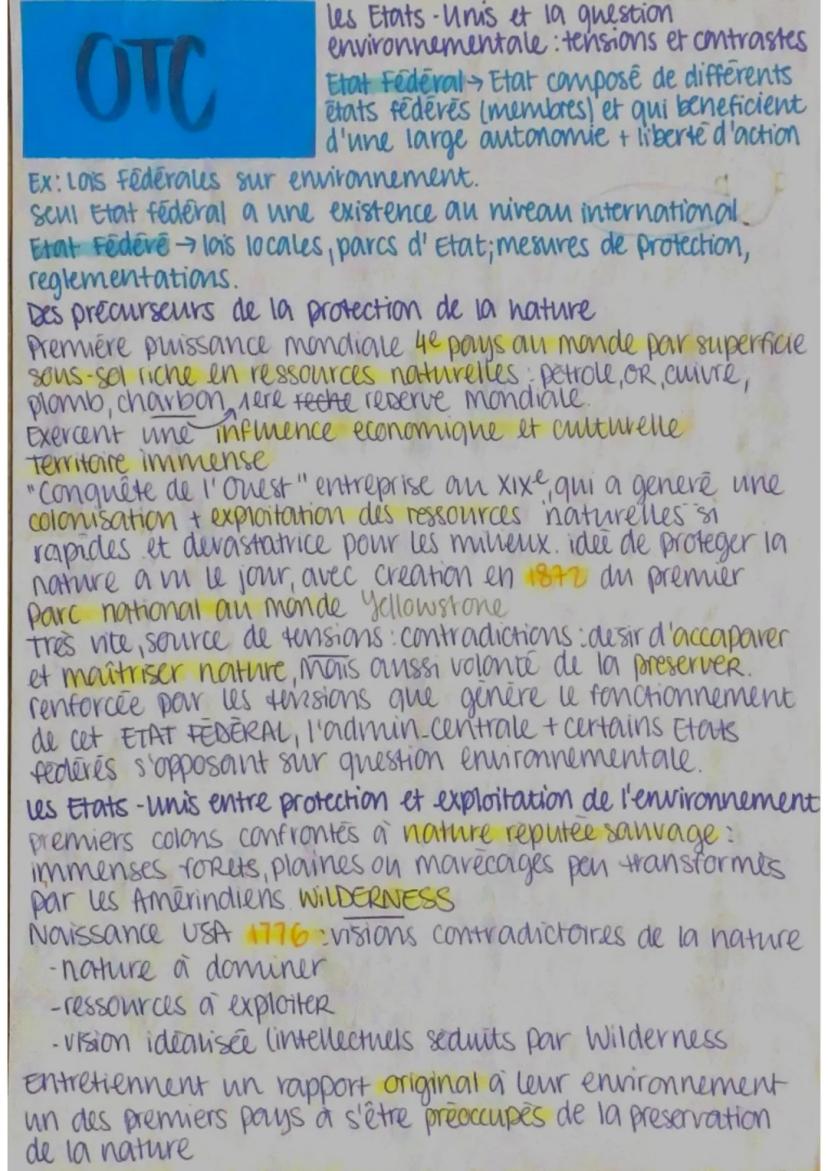 OTC
les Etats-Unis et la question
environnementale : tensions et contrastes
Etat Fédéral → Etat composé de différents
états fédérés (membres) et qui beneficient
d'une large autonomie + liberté d'action
Ex: Lois Fédérales sur environnement.
Seul Etat fédéral a une existence au niveau international
Etat Fédéré → lois locales, parcs d'Etat; mesures de protection,
reglementations.
Des précurseurs de la protection de la nature
Première puissance mondiale 4e pays au monde par superficie
sous-sol riche en ressources naturelles : pétrole, OR, cuivre,
plomb, charbon, 1ere reserve mondiale.
Exercent une influence economique et culturelle
Territoire immense
"Conquête de l'Ouest" entreprise au XIXe, qui a generé une
colonisation + exploitation des ressources naturelles si
rapides et dévastatrice pour les milieux. idée de proteger la
nature a vu le jour, avec creation en 1872 du premier
parc national au monde Yellowstone
Très vite, source de tensions : contradictions : desir d'accaparer
et maîtriser nature, mais aussi volonté de la preserver.
renforcée par les tensions que génère le fonctionnement
de cet ETAT FÉDÉRAL, l'admin-centrale + certains Etats
fédérés s'opposant sur question environnementale.
les Etats-Unis entre protection et exploitation de l'environnement
premiers colons confrontés à nature reputée sauvage :
immenses forêts, plaines ou marécages peu transformés
par les Amérindiens WILDERNESS
Naissance USA 1776 : visions contradictoires de la nature
-nature à dominer
-ressources à exploiter
-vision idéalisée (intellectuels séduits par Wilderness
Entretiennent un rapport original à leur environnement
un des premiers pays à s'être préoccupés de la preservation
de la nature